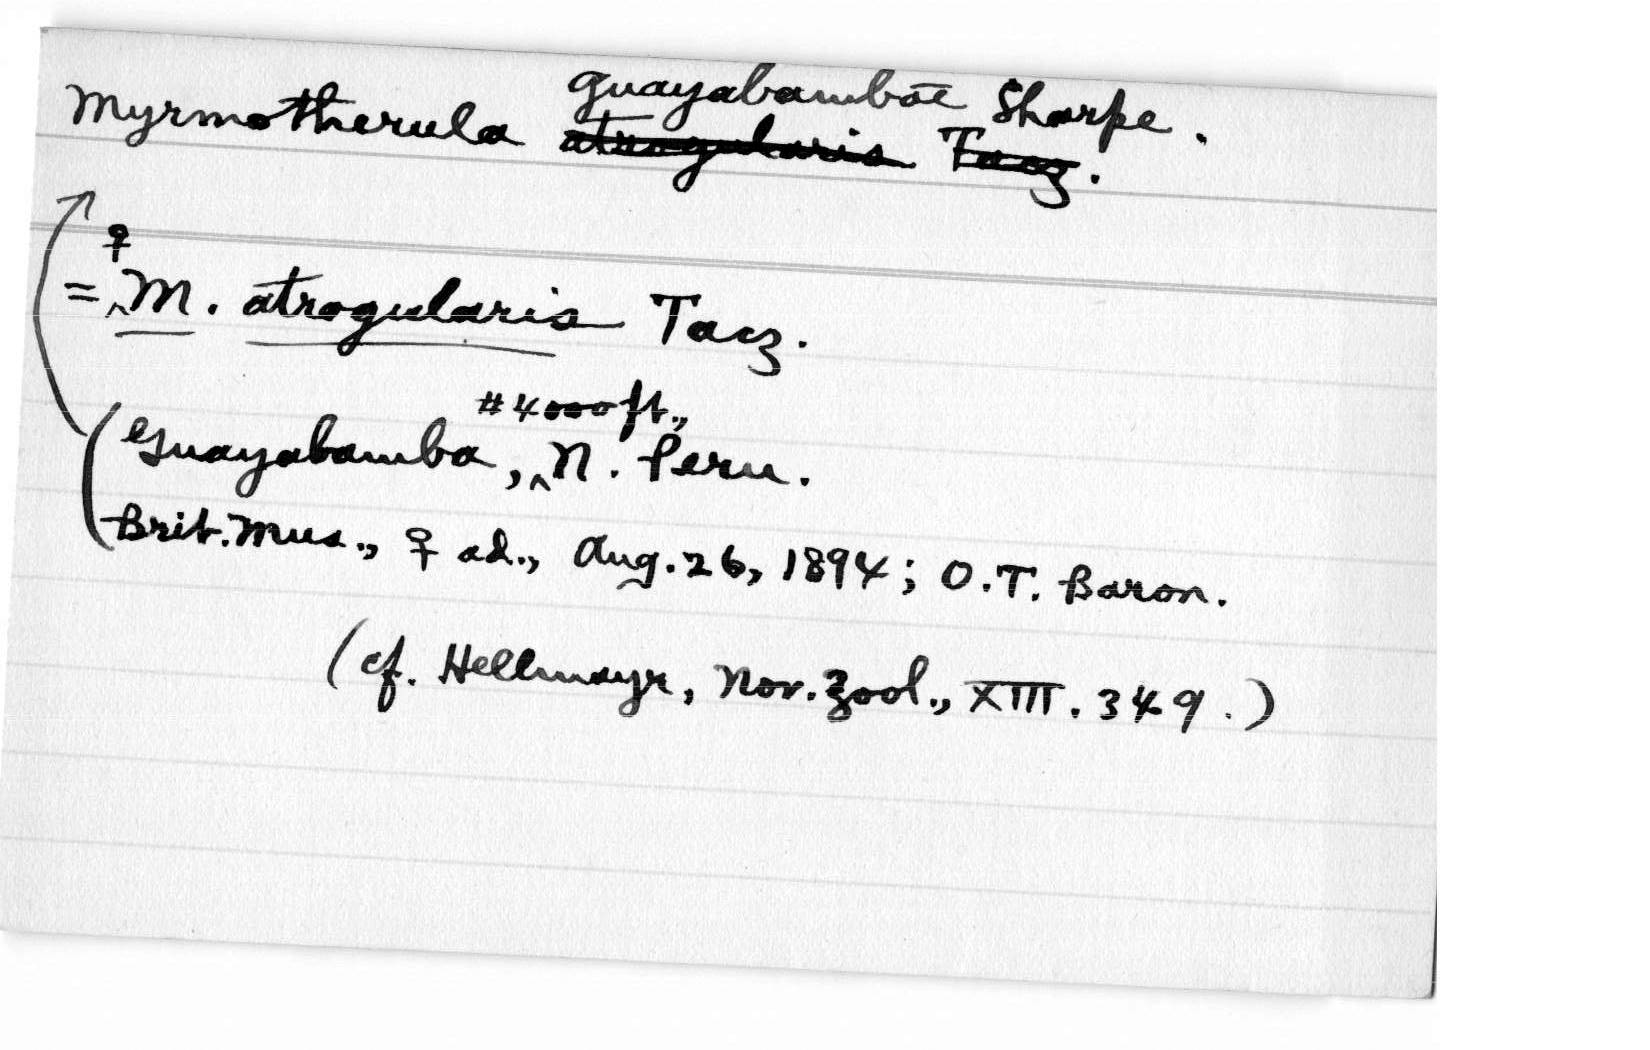 Myrmotherula guayabambae Sharpe.
atrogularis Tacz.
= ^ ♀ M. atrogularis Tacz.
# 4000 ft.,
(Guayabamba, ^ N. Peru.
Brit. Mus., ♀ ad., Aug. 26, 1894; O.T. Baron.
(cf. Hellmayr, Nov. Zool., XIII. 349.)